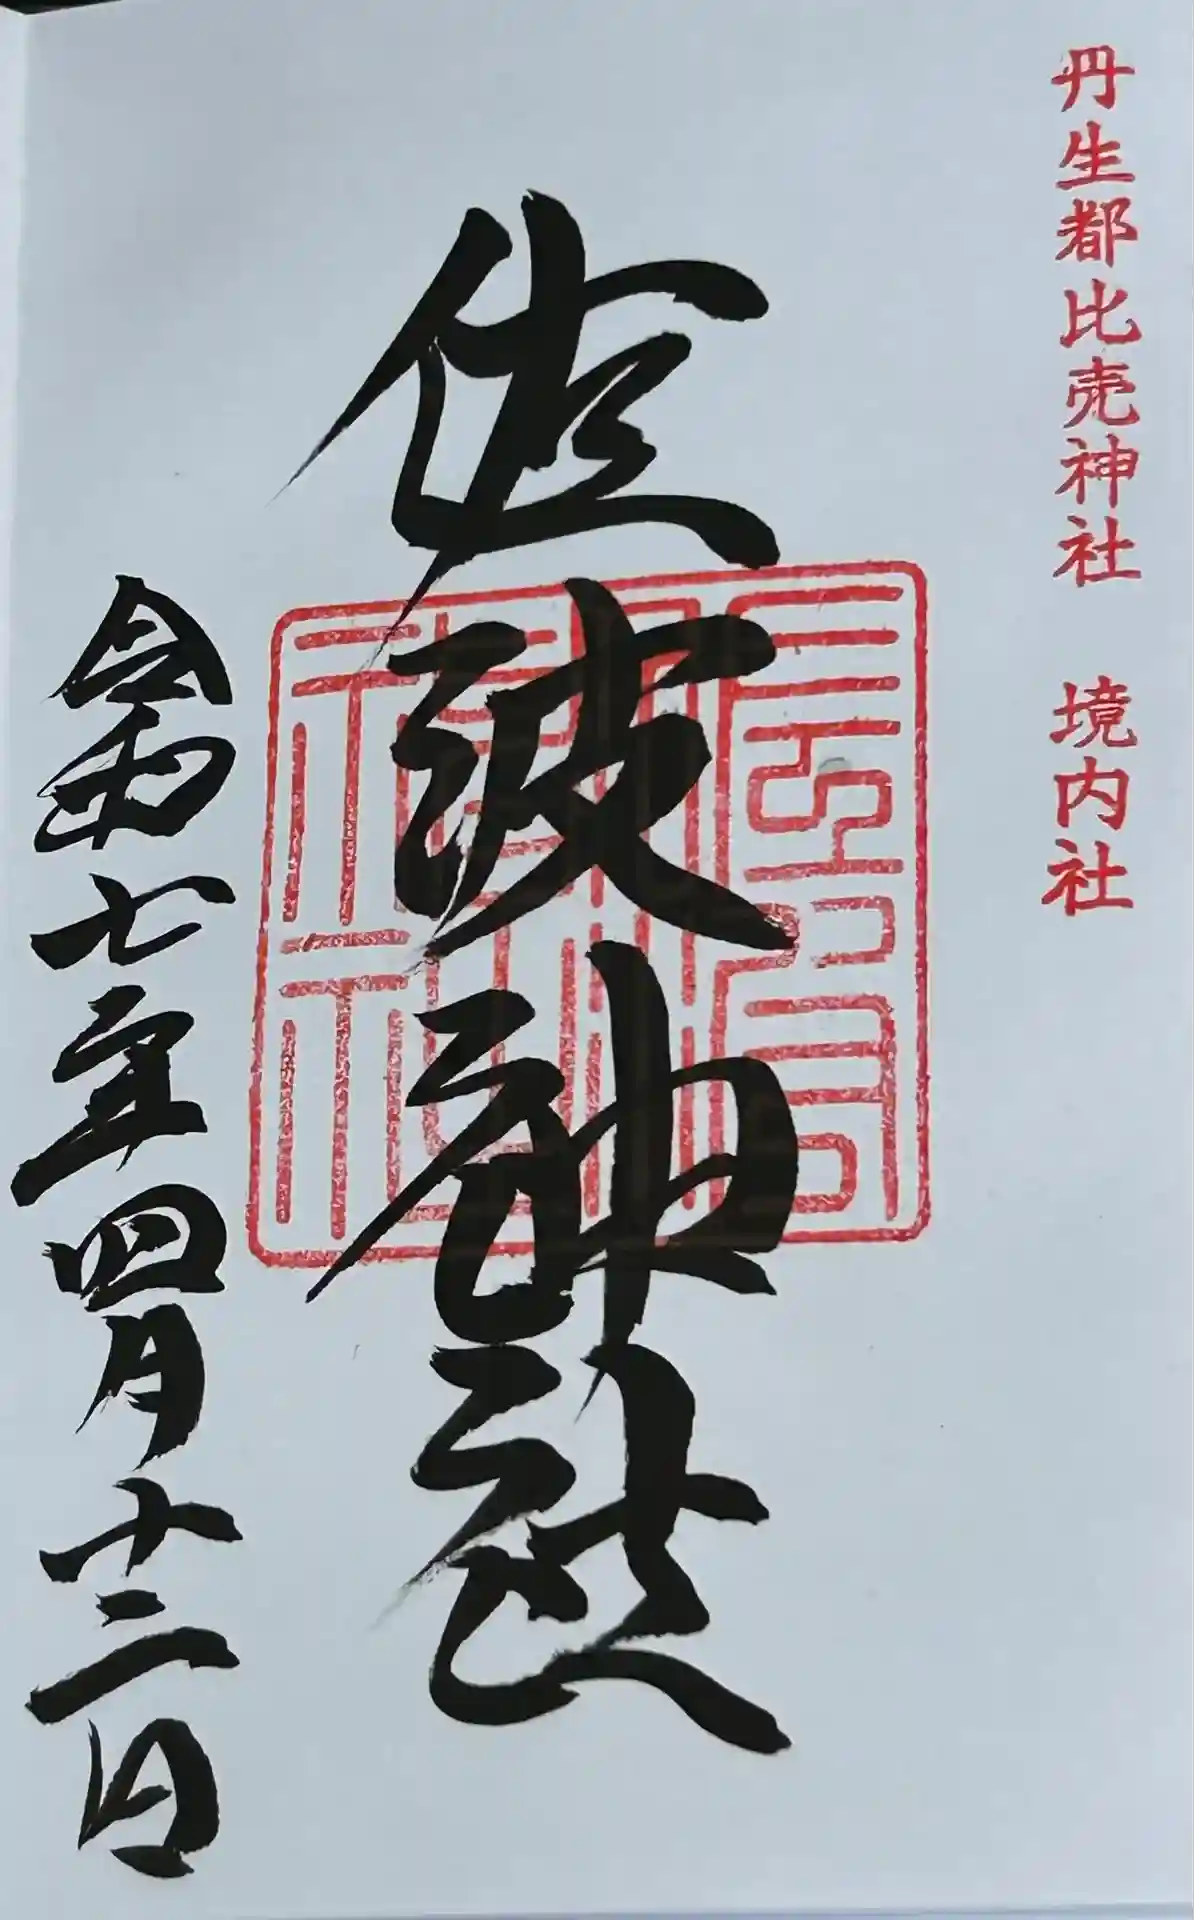 丹生都比売神社　境内社
佐波神社
令和七年四月十二日